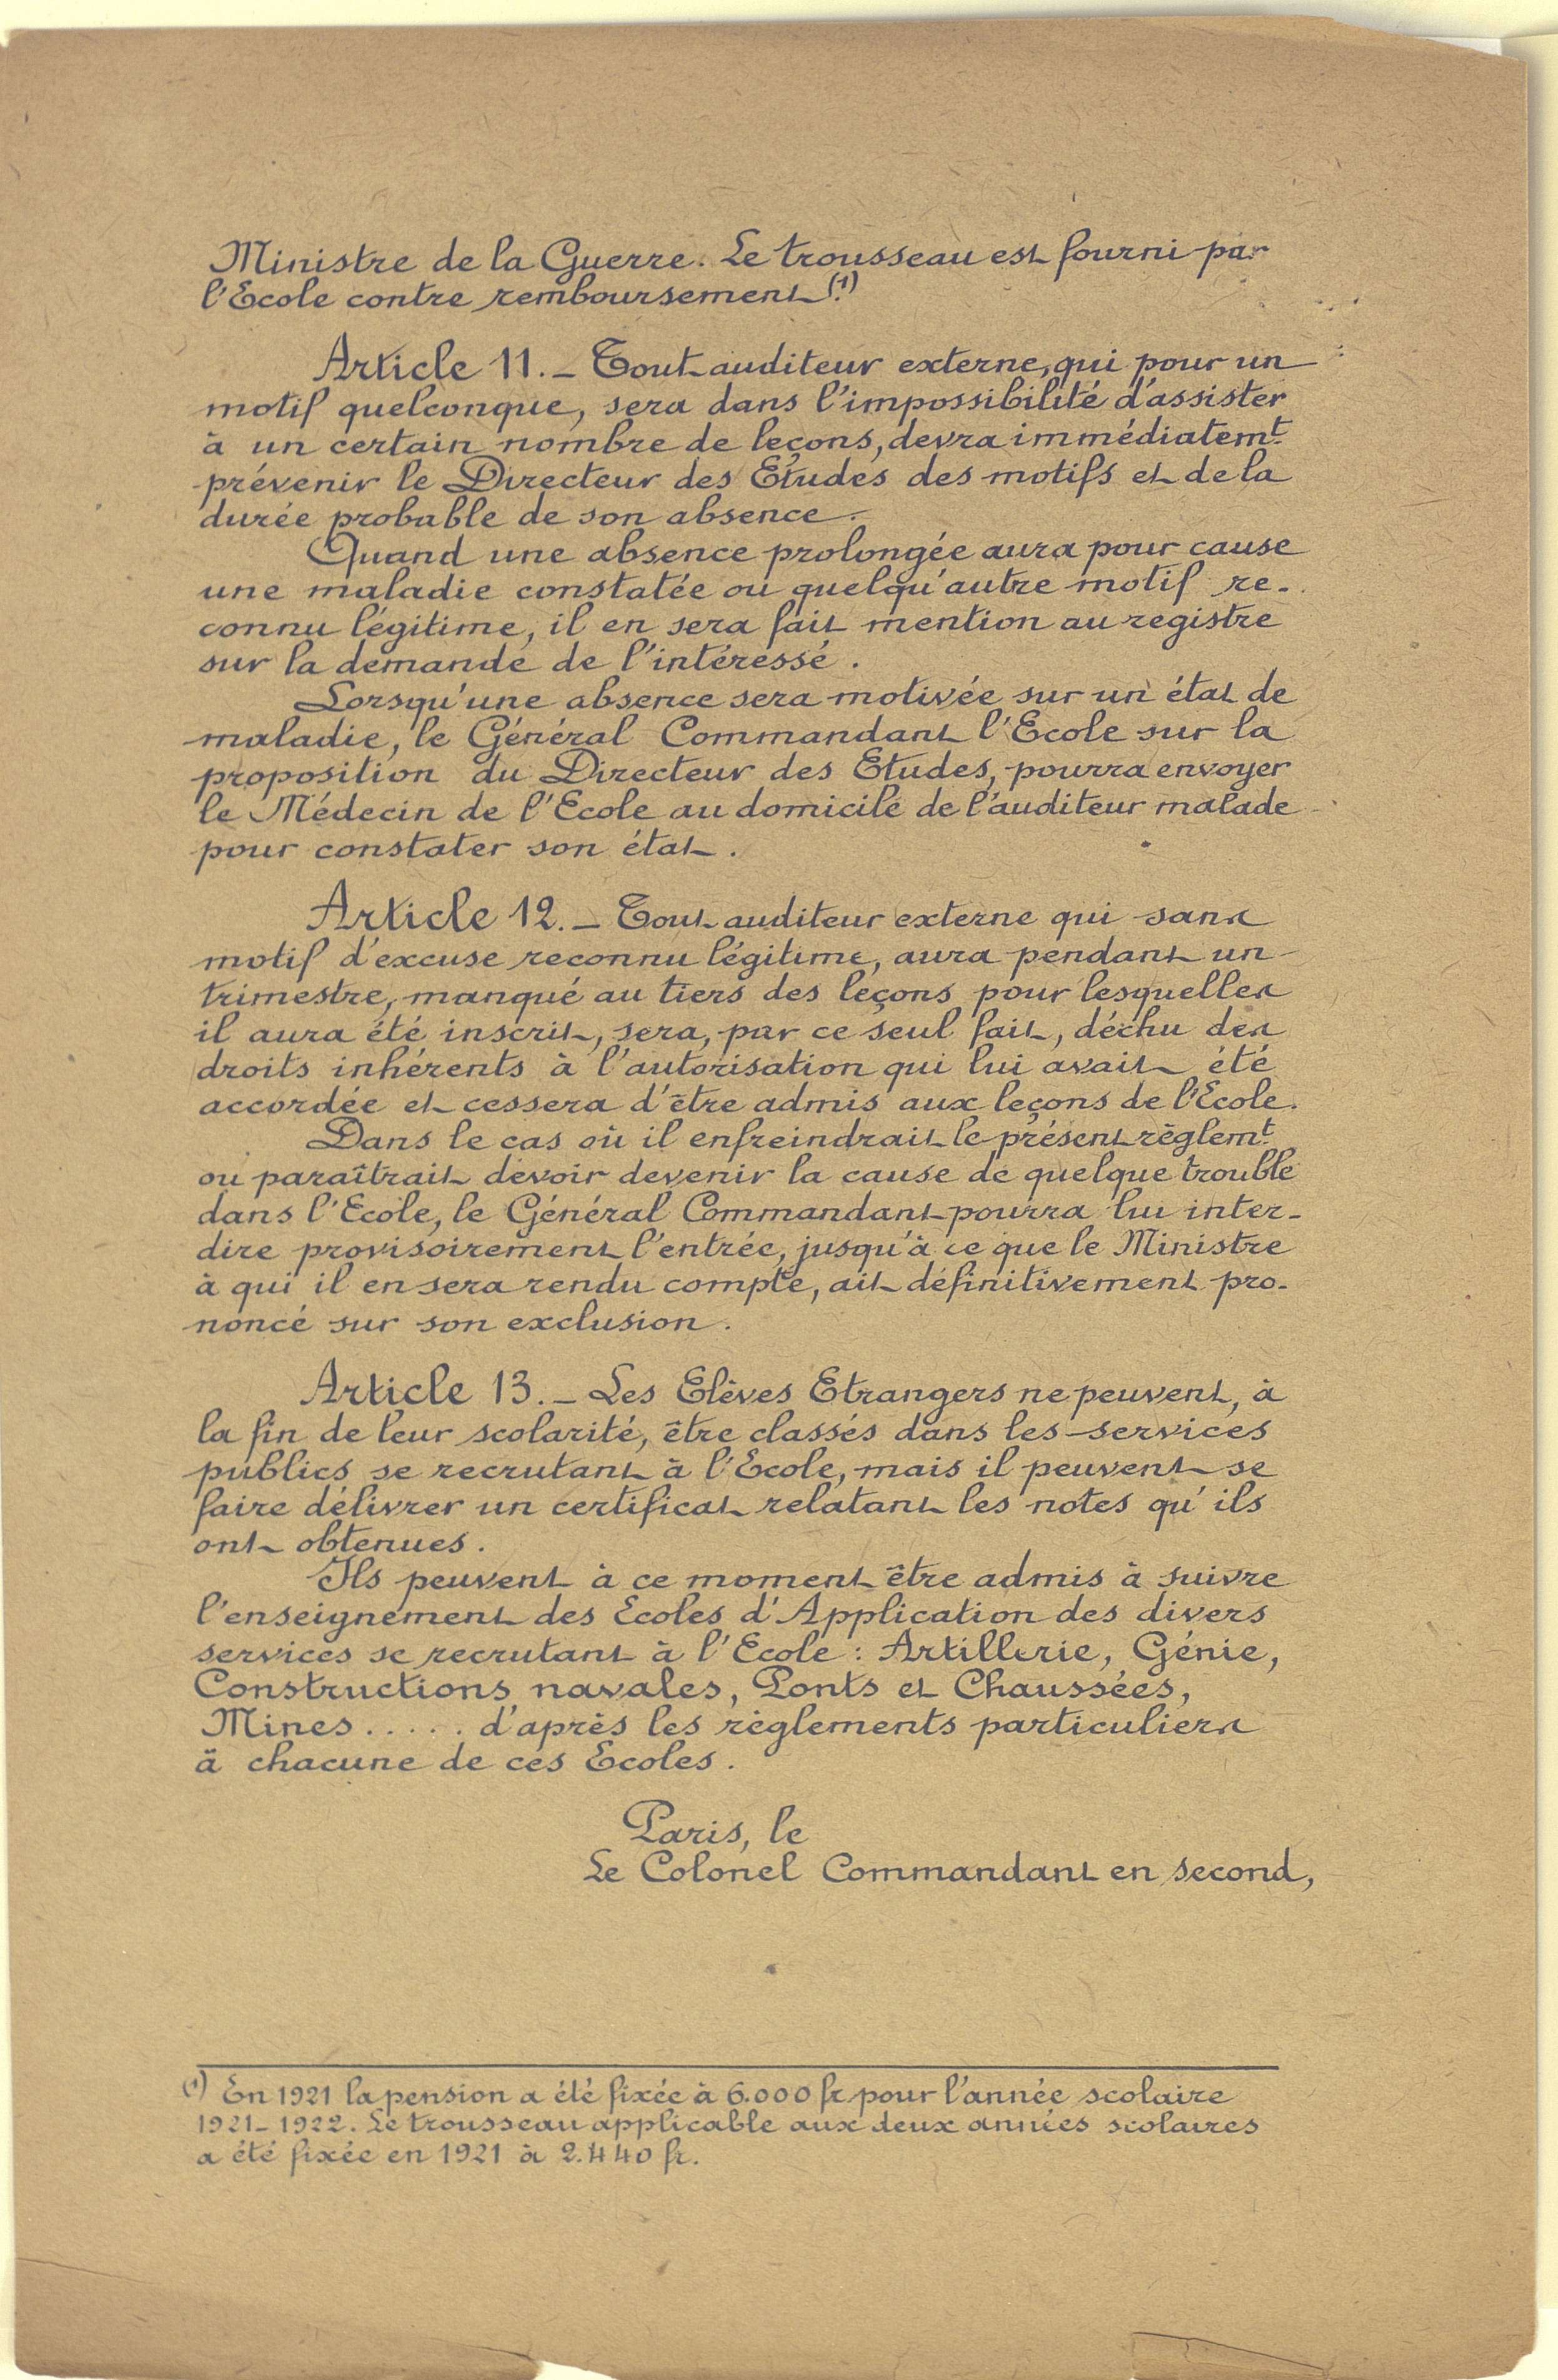 Ministre de la Guerre. Le trousseau est fourni par
l'Ecole contre remboursement (1).
Article 11. _ Tout auditeur externe, qui pour un
motif quelconque, sera dans l'impossibilité d'assister
à un certain nombre de leçons, devra immédiatemt
prévenir le Directeur des Etudes des motifs et de la
durée probable de son absence.
Quand une absence prolongée aura pour cause
une maladie constatée ou quelqu'autre motif re-
connu légitime, il en sera fait mention au registre
sur la demande de l'intéressé.
Lorsqu'une absence sera motivée sur un état de
maladie, le Général Commandant l'Ecole sur la
proposition du Directeur des Etudes, pourra envoyer
le Médecin de l'Ecole au domicile de l'auditeur malade
pour constater son état.
Article 12. _ Tout auditeur externe qui sans
motif d'excuse reconnu légitime, aura pendant un
trimestre, manqué au tiers des leçons pour lesquelles
il aura été inscrit, sera, par ce seul fait, déchu des
droits inhérents à l'autorisation qui lui avait été
accordée et cessera d'être admis aux leçons de l'Ecole.
Dans le cas où il enfreindrait le présent règlemt
ou paraîtrait devoir devenir la cause de quelque trouble
dans l'Ecole, le Général Commandant pourra lui inter-
dire provisoirement l'entrée, jusqu'à ce que le Ministre
à qui il en sera rendu compte, ait définitivement pro-
noncé sur son exclusion.
Article 13. _ Les Elèves Etrangers ne peuvent, à
la fin de leur scolarité, être classés dans les services
publics se recrutant à l'Ecole, mais il peuvent se
faire délivrer un certificat relatant les notes qu'ils
ont obtenues.
Ils peuvent à ce moment être admis à suivre
l'enseignement des Ecoles d'Application des divers
services se recrutant à l'Ecole : Artillerie, Génie,
Constructions navales, Ponts et Chaussées,
Mines ..... d'après les règlements particuliers
à chacune de ces Ecoles.
Paris, le
Le Colonel Commandant en second,
(1) En 1921 la pension a été fixée à 6.000 fr pour l'année scolaire
1921-1922. Le trousseau applicable aux deux années scolaires
a été fixée en 1921 à 2.440 fr.